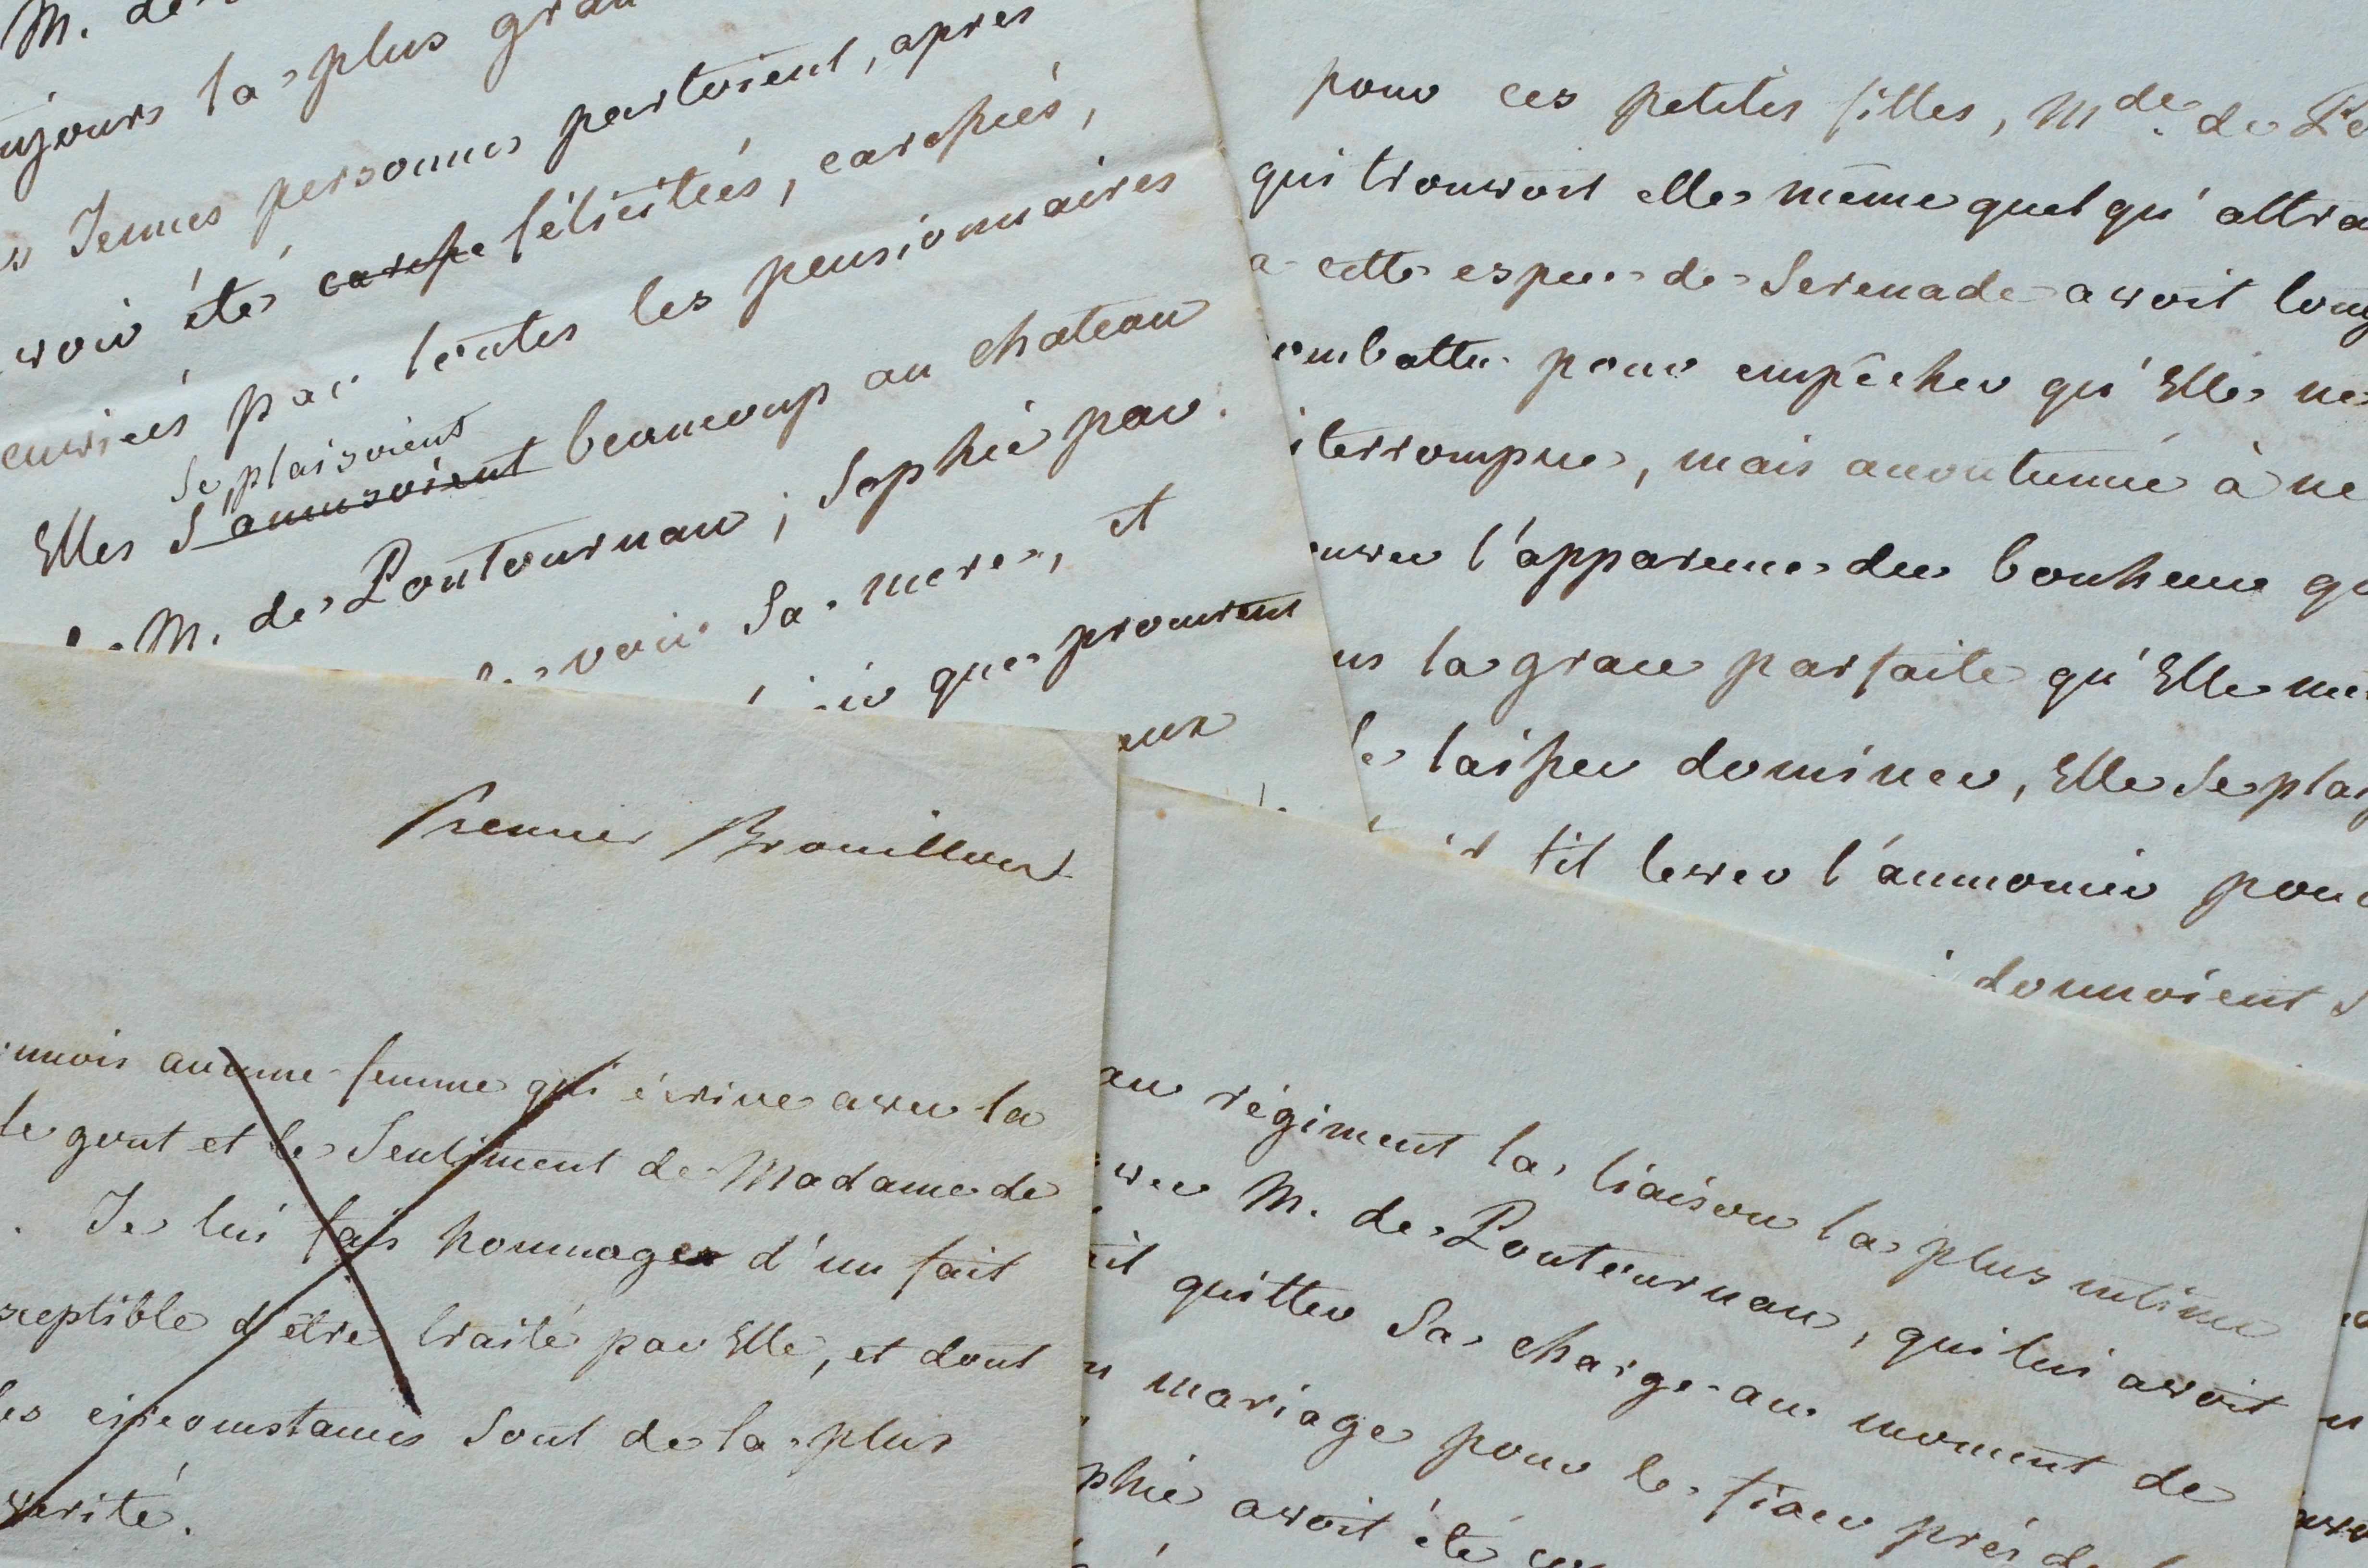 M. de
ujours la plus gran
s Jeunes personnes partoient, après
voir été carehe félicitées, carehées,
enviées par toutes les pensionnaires
se plaisoient
Elles S'amusoient beaucoup au chateau
M. de Pontournau; Sophie par
voir Sa mere, et
que procurent
eux
pour ces petites filles, Mde. de Po
qui trouvoit elle même quelqu'attra
a cette espece de Serenade avoit long
ombattu pour empêcher qu'Elle ne
iterrompue, mais accoutumée à ne
ouver l'apparence du bonheur q
ns la grace parfaite qu'Elle me
laisser dominer, Elle Se plai
til lever l'aumonier pour
donnoient S
Premier Brouillon
nnois aucune femme qui écrive avec la
le gout et le Sentiment de Madame de
. Je lui fais hommage d'un fait
sceptible d'être traité par Elle, et dont
les circomstances Sont de la plus
verité.
au régiment la liaison la plus intime
vec M. de Pontournau, qui lui avoit
it quitter Sa charge au moment de
n mariage pour le fixer près de
phie avoit été